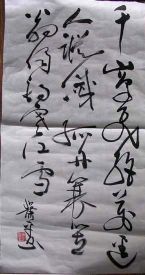 千山鳥飛絕萬逕
人蹤滅孤舟蓑笠
翁獨釣寒江雪